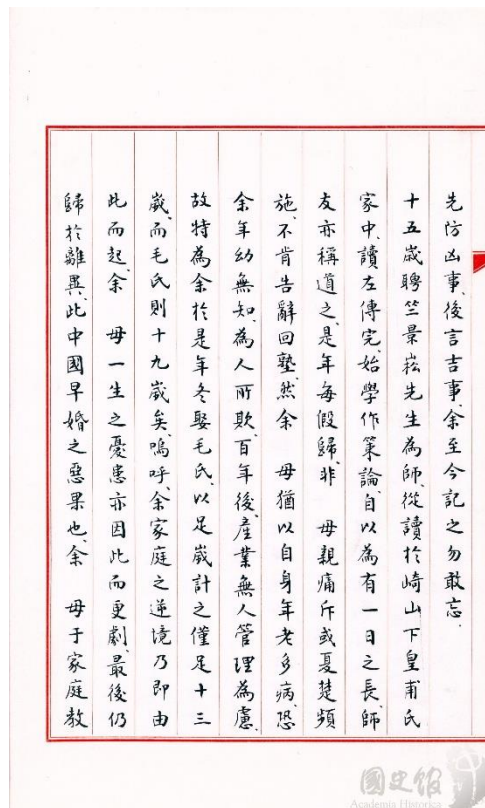 先防凶事、後言吉事、余至今記之勿敢忘、
十五歲聘竺景崧先生為師、從讀於崎山下皇甫氏
家中、讀左傳完、始學作策論、自以為有一日之長、師
友亦稱道之、是年每假歸、非　母親痛斥或夏楚頻
施、不肯告辭回塾、然余　母猶以自身年老多病、恐
余年幼無知、為人所欺、百年後、產業無人管理為慮、
故特為余於是年冬娶毛氏、以足歲計之僅足十三
歲、而毛氏則十九歲矣、嗚呼、余家庭之逆境乃即由
此而起、余　母一生之憂患亦因此而更劇、最後仍
歸於離異、此中國早婚之惡果也、余　母于家庭教
國史館
Academia Historica